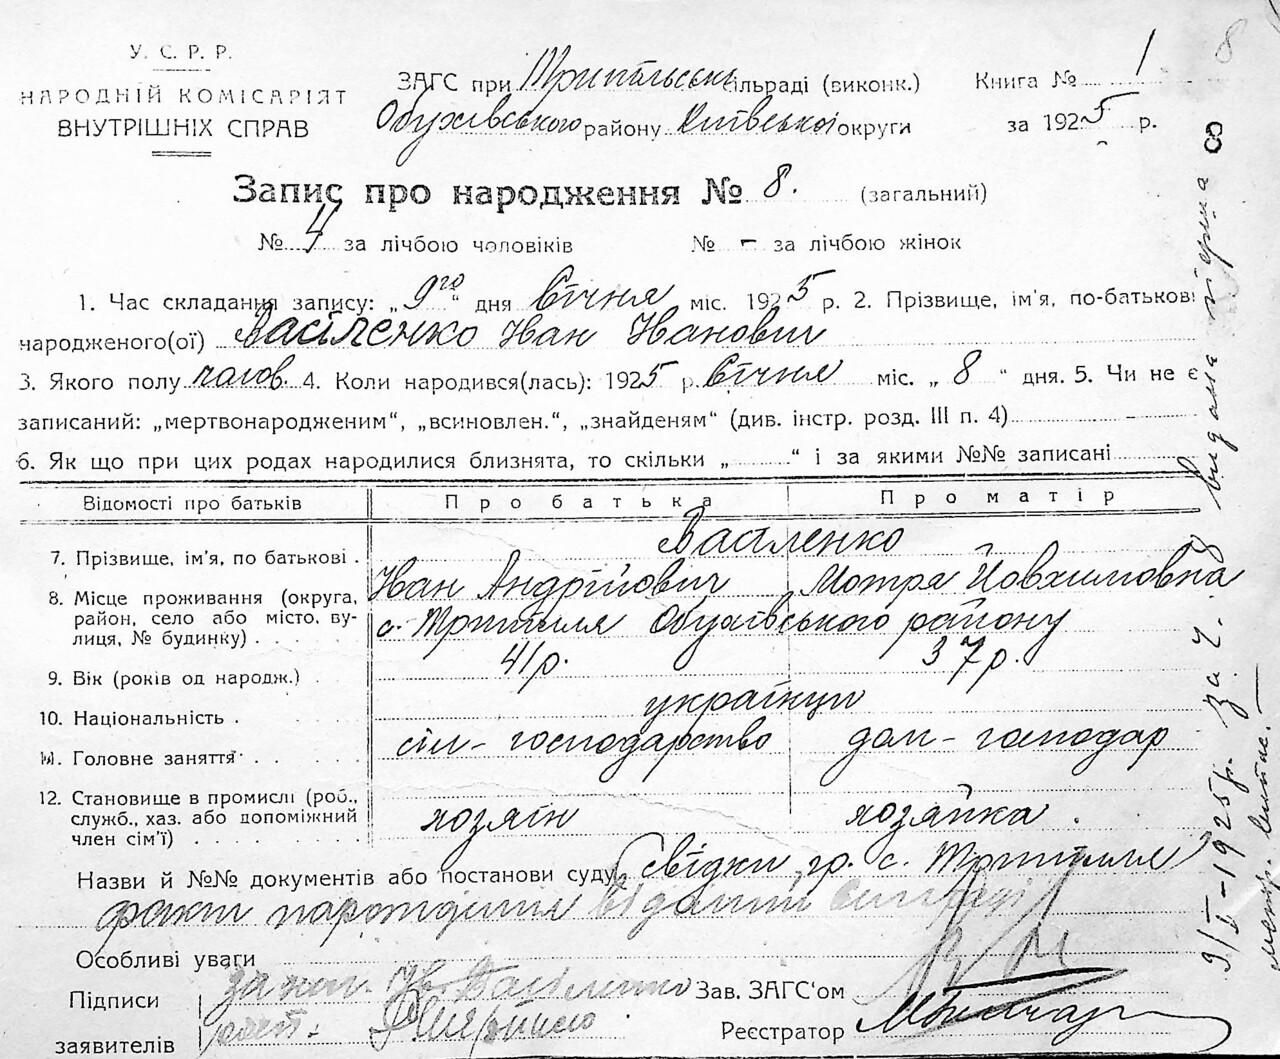 У. С. Р. Р.
НАРОДНІЙ КОМІСАРІЯТ
ВНУТРІШНІХ СПРАВ
ЗАГС при Трипільськ сільраді (виконк.)
Обухівського району Київської округи
Книга № 1
за 1925 р.
8
8
Запис про народження № 8. (загальний)
№ 4 за лічбою чоловіків № - за лічбою жінок
1. Час складання запису: „9го“ дня Січня міс. 1925 р. 2. Прізвище, ім'я, по-батькові
народженого(ої) Василенко Іван Іванович
3. Якого полу чолов. 4. Коли народився(лась): 1925 р. Січня міс. „8“ дня. 5. Чи не є
записаний: „мертвонародженим“, „всиновлен.“, „знайденям“ (див. інстр. розд. III п. 4)
6. Як що при цих родах народилися близнята, то скільки „ “ і за якими №№ записані
Відомості про батьків Про батька Про матір
Василенко
7. Прізвище, ім'я, по батькові .
Іван Андрійович Мотря Йовхимовна
8. Місце проживання (округа,
район, село або місто, ву-
лиця, № будинку) . . . .
с. Трипілля Обухівського району
9. Вік (років од народж.) . 41 р. 37 р.
10. Національність . українці
11. Головне заняття . . . . сіл-господарство дом-господар
12. Становище в промислі (роб.,
служб., хаз. або допоміжний
член сім'ї) . . . . . . .
хозяїн хозяйка
Назви й №№ документів або постанови суду свідки гр. с. Трипілля
факт народження
Особливі уваги
Підписи
заявителів
Ів. Василенко
Зав. ЗАГС'ом
Реєстратор
9/I-1925 р. За ч. 8 видана перша
метр. витяг.